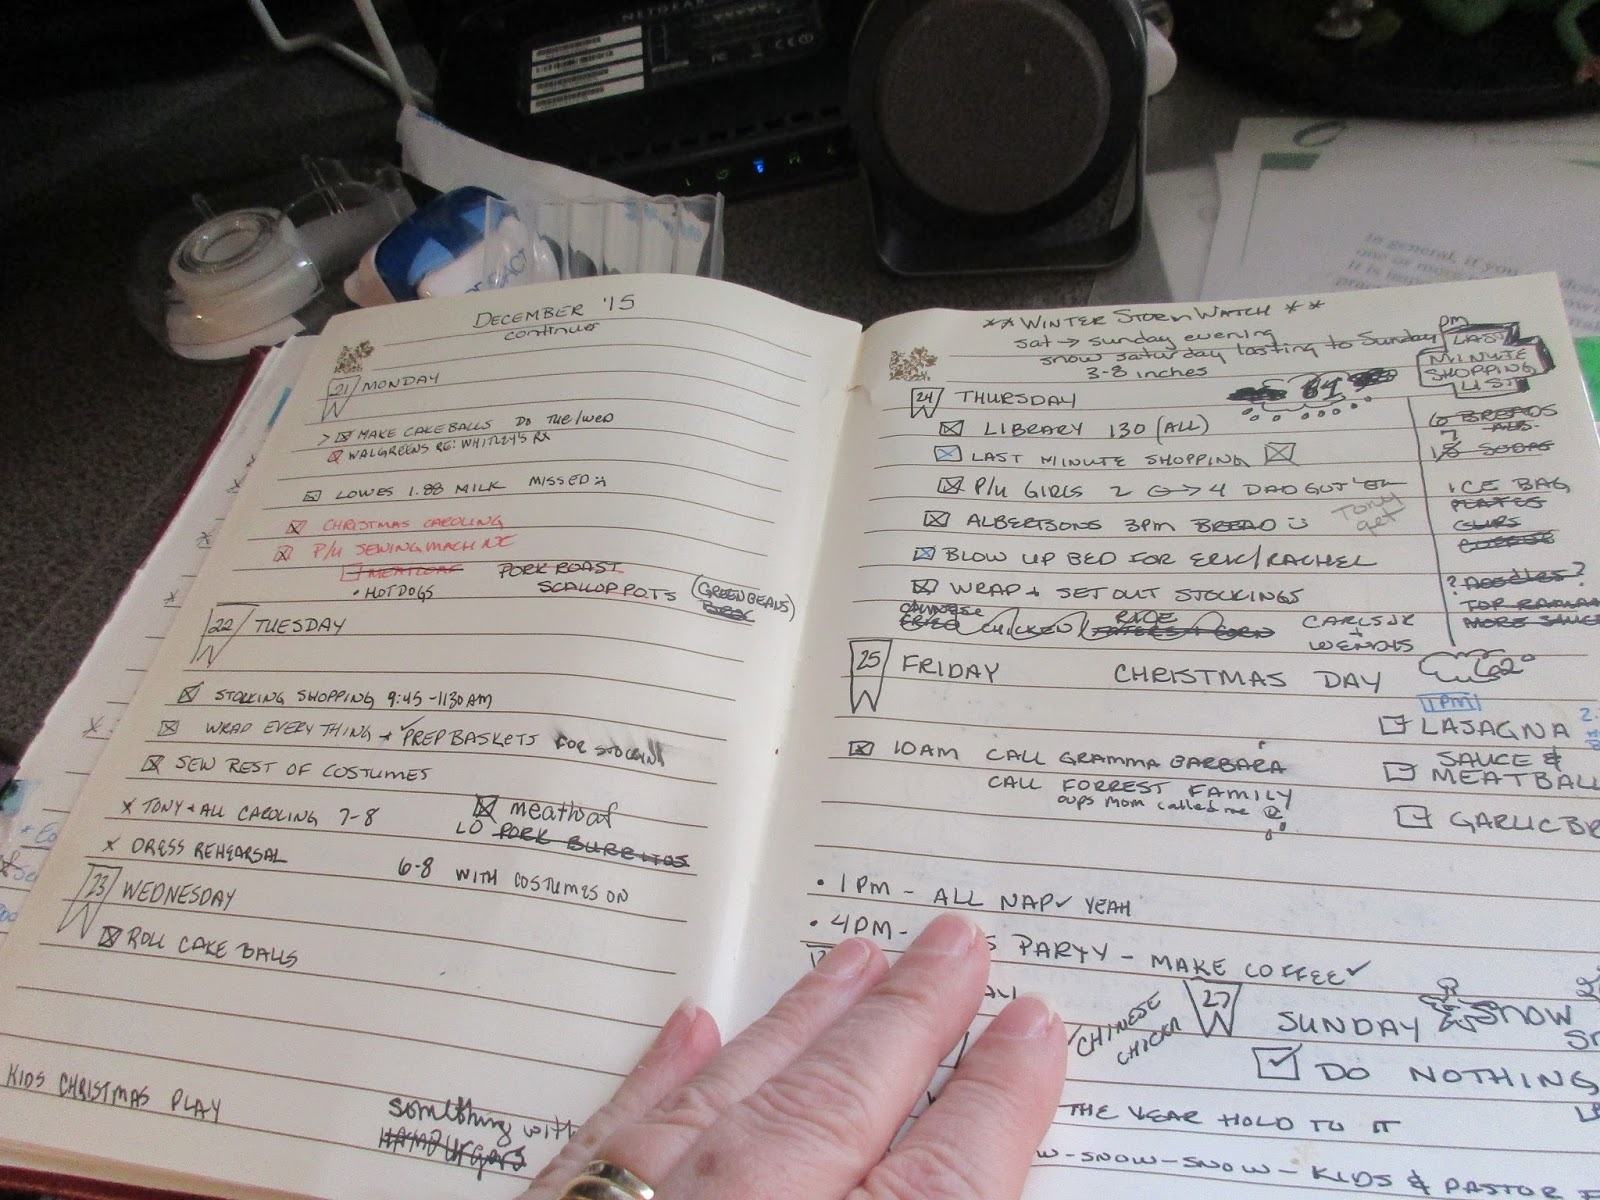 NETGEAR
DECEMBER '15
continues
21 MONDAY
> MAKE CAKEBALLS DO TUE/WED
WALGREENS RE: WHITLEY'S RX
LOWES 1.88 MILK MISSED
CHRISTMAS CAROLING
P/U SEWING MACHINE
MEATLOAF PORK ROAST
• HOT DOGS SCALLOP POTS (GREEN BEANS)
22 TUESDAY
STOCKING SHOPPING 9:45-1130AM
WRAP EVERYTHING + PREP BASKETS FOR
SEW REST OF COSTUMES
X TONY + ALL CAROLING 7-8
meatloaf
LO PORK BURRITOS
X DRESS REHEARSAL 6-8 WITH COSTUMES ON
23 WEDNESDAY
ROLL CAKE BALLS
KIDS CHRISTMAS PLAY
something with
HAMBURGERS
** WINTER STORM WATCH **
sat → sunday evening
snow saturday lasting to Sunday pm
3-8 inches
LAST
MINUTE
SHOPPING
LIST
24 THURSDAY
LIBRARY 130 (ALL)
LAST MINUTE SHOPPING
P/U GIRLS 2 4 DAD GOT
ALBERTSONS 3PM BREAD
Tony
get
BLOW UP BED FOR ERIK/RACHEL
WRAP + SET OUT STOCKINGS
CHINESE
FRIED CHICKEN / RICE
CARLS JR
+
WENDIS
6 BREADS
ICE BAG
PLATES
CUPS
COFFEE
? NOODLES?
TOP RAMAN
MORE SAUCE
25 FRIDAY CHRISTMAS DAY 62°
1PM
LASAGNA
SAUCE &
MEATBALL
GARLIC BR
10AM CALL GRAMMA BARBARA
CALL FORREST FAMILY
oups mom called me
• 1PM - ALL NAP✓ YEAH
• 4PM- PARTY - MAKE COFFEE ✓
CHINESE
CHICKN
27 SUNDAY SNOW
DO NOTHING
THE YEAR HOLD TO IT
-SNOW-SNOW- KIDS & PASTOR